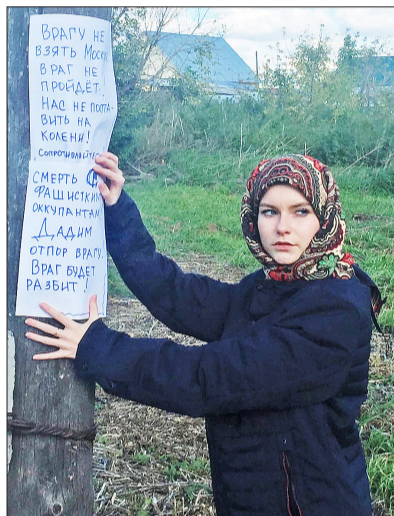 Врагу не
взять Москву
враг не
пройдёт.
Нас не поста-
вить на
колени!
Сопротивляйтесь
Смерть
фашистким
оккупантам
Дадим
отпор врагу.
Враг будет
разбит!